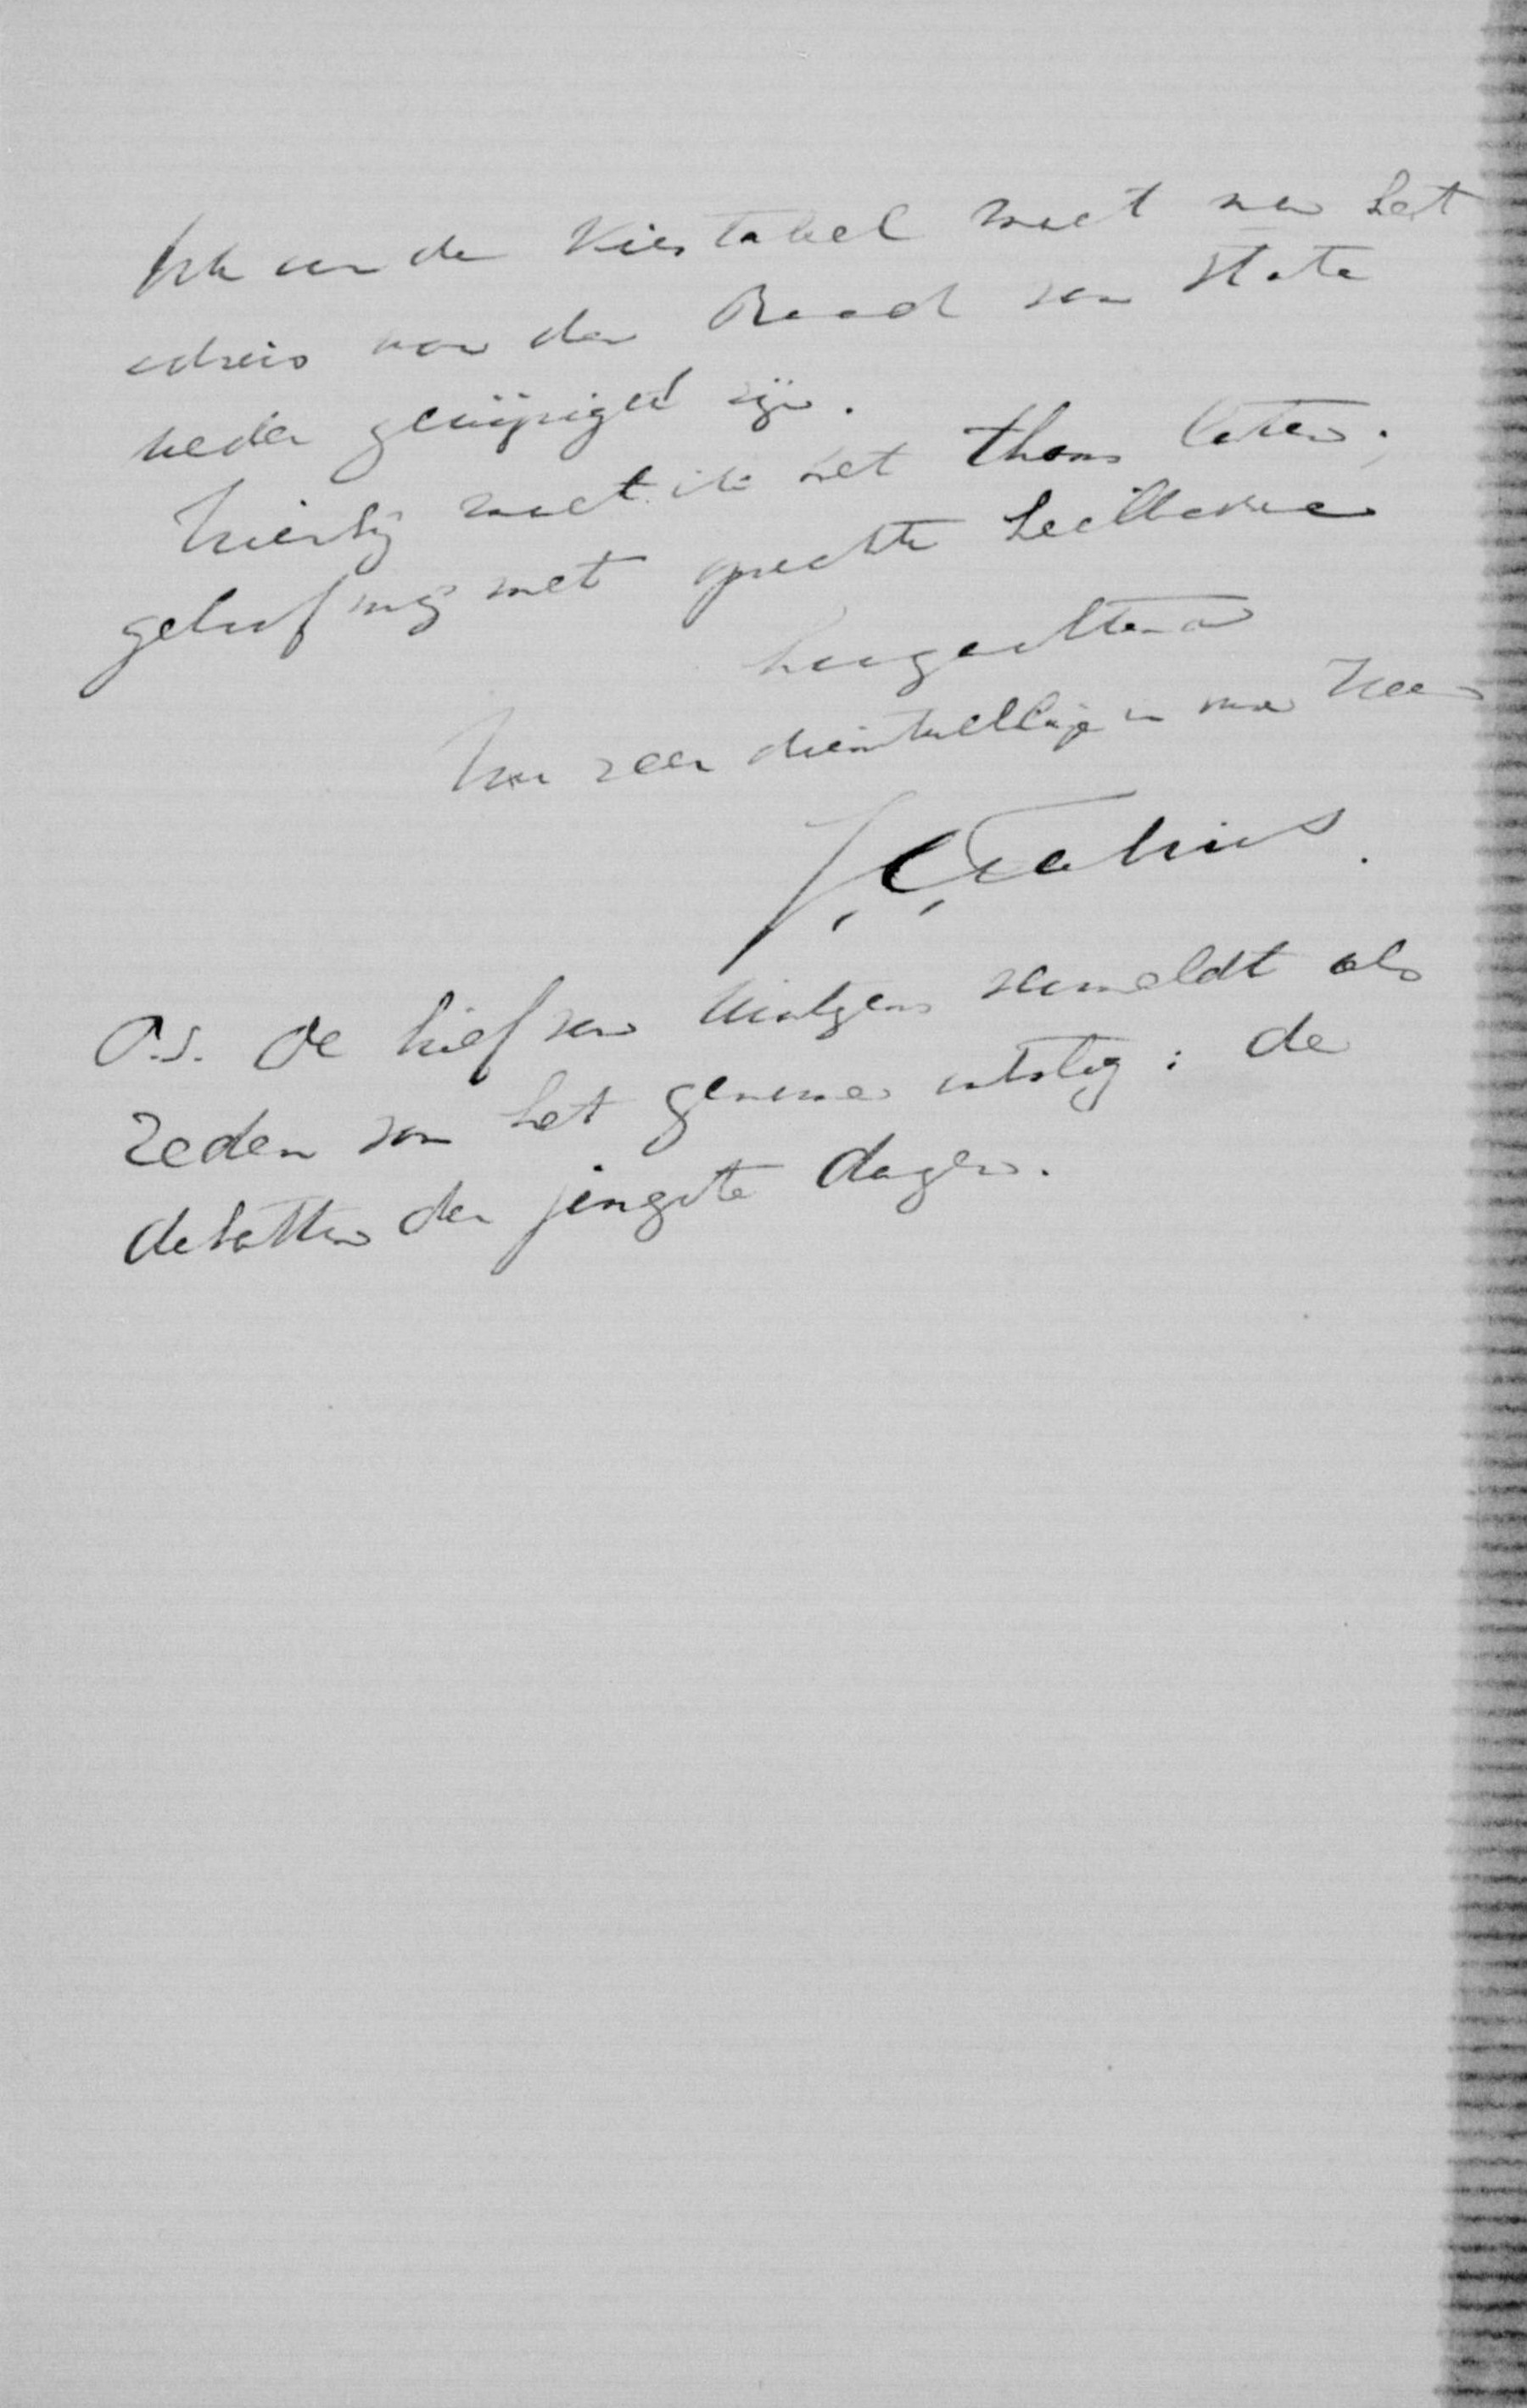 Ook aan de Kiestabel moet na het
advies van den Raad van State
weder gewijzigd zijn.
Hierbij moet ik het thans laten;
geloof mij met oprechte heilbede
hoogachtend
Uw zeer dienstwillige in onze Heer
J.C. Fabius.
P.S. De brief van Wintgens vermeldt als
reden van het genomen ontslag: de
debatten der jongste dagen.